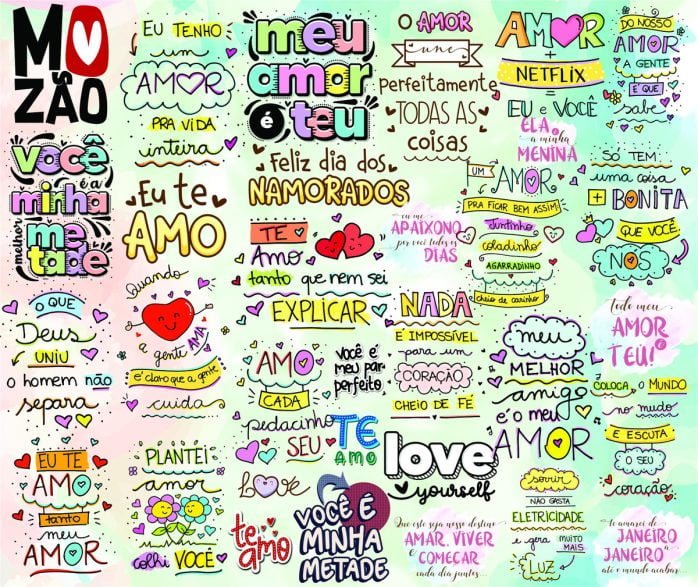 MO
ZÃO
EU TENHO
um
AMOR
PRA VIDA
inteira
meu
amor
é teu
O AMOR
une
perfeitamente
TODAS AS
coisas
AMOR
+
NETFLIX
=
EU e VOCÊ
DO NOSSO
AMOR
A GENTE
É QUE
sabe
você
é a
minha
melhor
metade
Eu te
AMO
Feliz dia dos
NAMORADOS
ELA é
a minha
MENINA
UM
AMOR
PRA FICAR BEM ASSIM:
Juntinho
coladinho
AGARRADINHO
cheio de carinho
SÓ TEM
uma COISA
+ BONITA
QUE VOCÊ
NÓS
TE
Amo
tanto que nem sei
EXPLICAR
eu me
APAIXONO
por você todos os
DIAS
O QUE
Deus
UNIU
o homem não
separa
Quando
a gente AMA
é claro que a gente
cuida
AMO
CADA
pedacinho
SEU
VOCÊ É
MEU PAR
PERFEITO
NADA
É IMPOSSÍVEL
para um
CORAÇÃO
CHEIO DE FÉ
meu
MELHOR
amigo
É O meu
AMOR
Todo meu
AMOR
é
TEU!
COLOCA o MUNDO
no mudo
E ESCUTA
O SEU
coração
EU TE
AMO
tanto
meu
AMOR
PLANTEI
amor
colhi VOCÊ
Love
TE
AMO
love
yourself
te
amo
VOCÊ É
MINHA
METADE
Que este seja nosso destino:
AMAR, VIVER
e
COMEÇAR
cada dia juntos...
sorrir
NÃO GASTA
ELETRICIDADE
e gera MUITO MAIS
LUZ
te amarei de
JANEIRO
a
JANEIRO
até o mundo acabar...